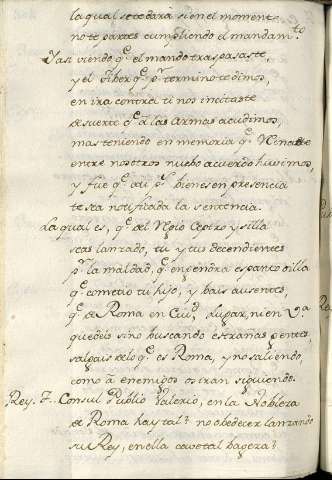 la qual se te dará si en el moment
no te partes cumpliendo el mandamto
Y asi viendo qe el mando traspasaste,
y el Tiber qe pr termino te dimos,
en ira contra ti nos incitaste
de suerte qe a las armas acudimos,
mas teniendo en memoria qe
entre nosotros nuebo acuerdo huvimos,
y fue qe aqi pr bienes en presencia
te sea notificada la sentencia.
La qual es, qe del Rejio Ceptro y silla
seas lanzado, tu y tus decendientes
pr la maldad, qe enjendra espanto oilla
qe cometio tu hijo, y bais ausentes,
qe de Roma en Ciud, lugar, ni en Va
quedeis sino buscando estrañas jentes,
salgais de lo qe es Roma, y no saliendo,
como a enemigos os iran siguiendo.
Rey. T. Consul Publio Valerio, en la Nobleza
de Roma hay tal? no obedecer lanzando
su Rey, en ella cave tal bageza?